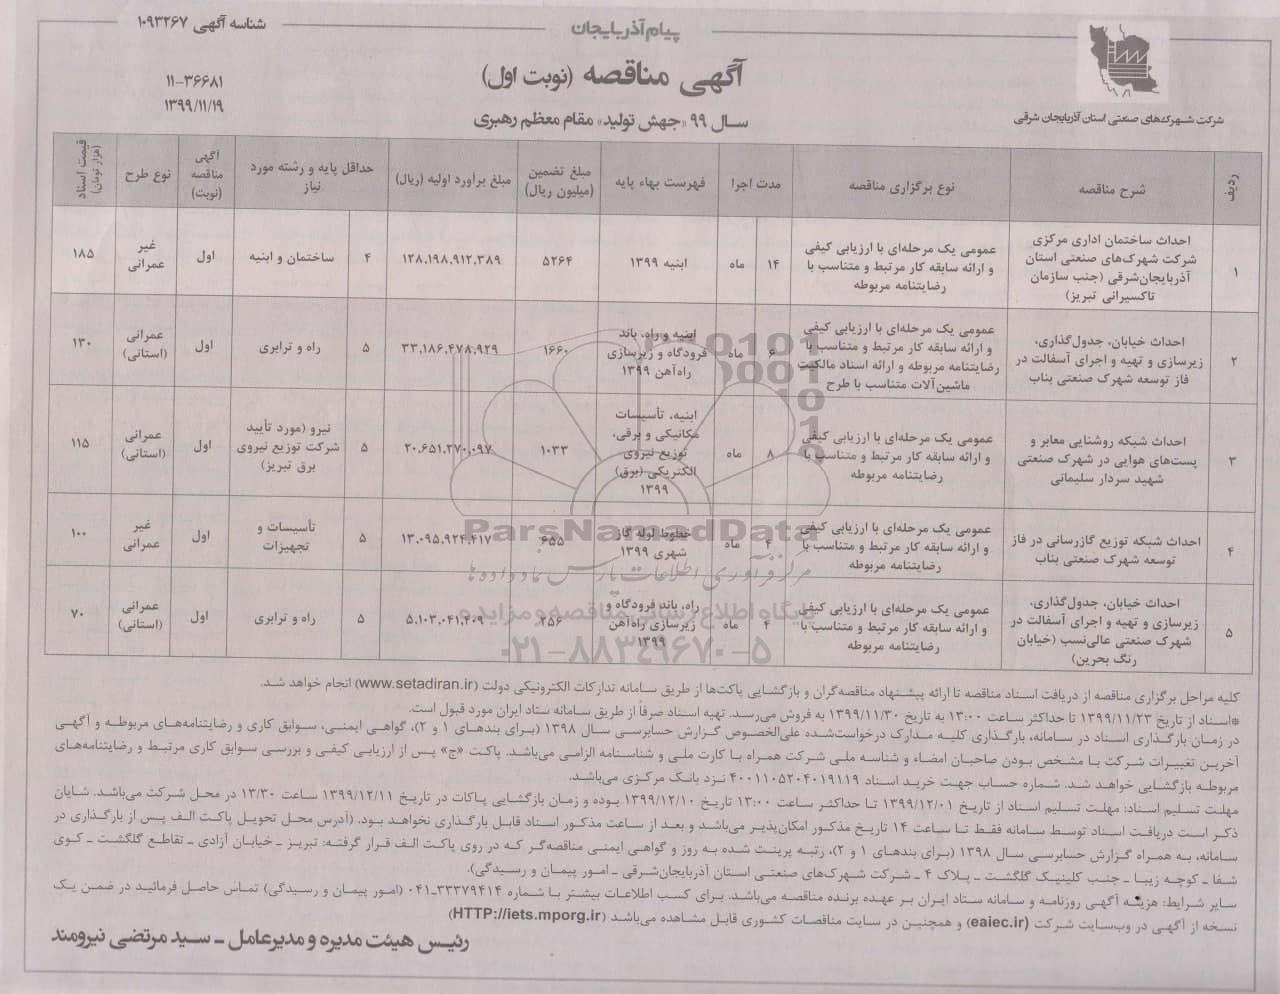 پیام آذربایجان
شناسه آگهی ۱۰۹۳۲۶۷
آگهی مناقصه (نوبت اول)
۱۱-۳۶۶۸۱
۱۳۹۹/۱۱/۱۹
سال ۹۹ «جهش تولید» مقام معظم رهبری
شرکت شهرک‌های صنعتی استان آذربایجان شرقی
ردیف | شرح مناقصه | نوع برگزاری مناقصه | مدت اجرا | فهرست بهاء پایه | مبلغ تضمین (میلیون ریال) | مبلغ برآورد اولیه (ریال) | حداقل پایه و رشته مورد نیاز | آگهی مناقصه (نوبت) | نوع طرح | قیمت اسناد (هزار تومان)
۱ | احداث ساختمان اداری مرکزی شرکت شهرک‌های صنعتی استان آذربایجان‌شرقی (جنب سازمان تاکسیرانی تبریز) | عمومی یک مرحله‌ای با ارزیابی کیفی و ارائه سابقه کار مرتبط و متناسب با رضایتنامه مربوطه | ۱۴ | ماه | ابنیه ۱۳۹۹ | ۵۲۶۴ | ۱۲۸،۱۹۸،۹۱۲،۳۸۹ | ۴ | ساختمان و ابنیه | اول | غیر عمرانی | ۱۸۵
۲ | احداث خیابان، جدول‌گذاری، زیرسازی و تهیه و اجرای آسفالت در فاز توسعه شهرک صنعتی بناب | عمومی یک مرحله‌ای با ارزیابی کیفی و ارائه سابقه کار مرتبط و متناسب با رضایتنامه مربوطه و ارائه اسناد مالکیت ماشین‌آلات متناسب با طرح | ۶ | ماه | ابنیه و راه، باند فرودگاه و زیرسازی راه‌آهن ۱۳۹۹ | ۱۶۶۰ | ۳۳،۱۸۶،۴۷۸،۹۲۹ | ۵ | راه و ترابری | اول | عمرانی (استانی) | ۱۳۰
۳ | احداث شبکه روشنایی معابر و پست‌های هوایی در شهرک صنعتی شهید سردار سلیمانی | عمومی یک مرحله‌ای با ارزیابی کیفی و ارائه سابقه کار مرتبط و متناسب با رضایتنامه مربوطه | ۸ | ماه | ابنیه، تأسیسات مکانیکی و برقی، توزیع نیروی الکتریکی (برق) ۱۳۹۹ | ۱۰۳۳ | ۲۰،۶۵۱،۲۷۰،۰۹۷ | ۵ | نیرو (مورد تأیید شرکت توزیع نیروی برق تبریز) | اول | عمرانی (استانی) | ۱۱۵
۴ | احداث شبکه توزیع گازرسانی در فاز توسعه شهرک صنعتی بناب | عمومی یک مرحله‌ای با ارزیابی کیفی و ارائه سابقه کار مرتبط و متناسب با رضایتنامه مربوطه | ۴ | ماه | خطوط لوله گاز شهری ۱۳۹۹ | ۶۵۵ | ۱۳،۰۹۵،۹۲۴،۴۱۷ | ۵ | تأسیسات و تجهیزات | اول | غیر عمرانی | ۱۰۰
۵ | احداث خیابان، جدول‌گذاری، زیرسازی و تهیه و اجرای آسفالت در شهرک صنعتی عالی‌نسب (خیابان رنگ بحرین) | عمومی یک مرحله‌ای با ارزیابی کیفی و ارائه سابقه کار مرتبط و متناسب با رضایتنامه مربوطه | ۴ | ماه | راه، باند فرودگاه و زیرسازی راه‌آهن ۱۳۹۹ | ۲۵۶ | ۵،۱۰۳،۰۴۱،۴۰۹ | ۵ | راه و ترابری | اول | عمرانی (استانی) | ۷۰
ParsNamadData
مرکز فرآوری اطلاعات پارس نماد داده‌ها
پایگاه اطلاع رسانی مناقصه و مزایده
۰۲۱-۸۸۳۴۹۶۷۰-۵
کلیه مراحل برگزاری مناقصه از دریافت اسناد مناقصه تا ارائه پیشنهاد مناقصه‌گران و بازگشایی پاکت‌ها از طریق سامانه تدارکات الکترونیکی دولت (www.setadiran.ir) انجام خواهد شد.
*اسناد از تاریخ ۱۳۹۹/۱۱/۲۳ تا حداکثر ساعت ۱۳:۰۰ به تاریخ ۱۳۹۹/۱۱/۳۰ به فروش می‌رسد. تهیه اسناد صرفاً از طریق سامانه ستاد ایران مورد قبول است.
در زمان بارگذاری اسناد در سامانه، بارگذاری کلیه مدارک درخواست‌شده علی‌الخصوص گزارش حسابرسی سال ۱۳۹۸ (برای بندهای ۱ و ۲)، گواهی ایمنی، سوابق کاری و رضایتنامه‌های مربوطه و آگهی
آخرین تغییرات شرکت با مشخص بودن صاحبان امضاء و شناسه ملی شرکت همراه با کارت ملی و شناسنامه الزامی می‌باشد. پاکت «ج» پس از ارزیابی کیفی و بررسی سوابق کاری مرتبط و رضایتنامه‌های
مربوطه بازگشایی خواهد شد. شماره حساب جهت خرید اسناد ۴۰۰۱۱۰۵۲۰۴۰۱۹۱۱۹ نزد بانک مرکزی می‌باشد.
مهلت تسلیم اسناد: مهلت تسلیم اسناد از تاریخ ۱۳۹۹/۱۲/۰۱ تا حداکثر ساعت ۱۳:۰۰ تاریخ ۱۳۹۹/۱۲/۱۰ بوده و زمان بازگشایی پاکات در تاریخ ۱۳۹۹/۱۲/۱۱ ساعت ۱۳/۳۰ در محل شرکت می‌باشد. شایان
ذکر است دریافت اسناد توسط سامانه فقط تا ساعت ۱۴ تاریخ مذکور امکان‌پذیر می‌باشد و بعد از ساعت مذکور اسناد قابل بارگذاری نخواهد بود. (آدرس محل تحویل پاکت الف پس از بارگذاری در
سامانه، به همراه گزارش حسابرسی سال ۱۳۹۸ (برای بندهای ۱ و ۲)، رتبه پرینت شده به روز و گواهی ایمنی مناقصه‌گر که در روی پاکت الف قرار گرفته: تبریز ـ خیابان آزادی ـ تقاطع گلگشت ـ کوی
شفا ـ کوچه زیبا ـ جنب کلینیک گلگشت ـ پلاک ۴ ـ شرکت شهرک‌های صنعتی استان آذربایجان‌شرقی ـ امور پیمان و رسیدگی).
سایر شرایط: هزینه آگهی روزنامه و سامانه ستاد ایران بر عهده برنده مناقصه می‌باشد. برای کسب اطلاعات بیشتر با شماره ۳۳۳۷۹۴۱۴-۰۴۱ (امور پیمان و رسیدگی) تماس حاصل فرمائید در ضمن یک
نسخه از آگهی در وب‌سایت شرکت (eaiec.ir) و همچنین در سایت مناقصات کشوری قابل مشاهده می‌باشد (HTTP://iets.mporg.ir)
رئیس هیئت مدیره و مدیرعامل ـ سید مرتضی نیرومند